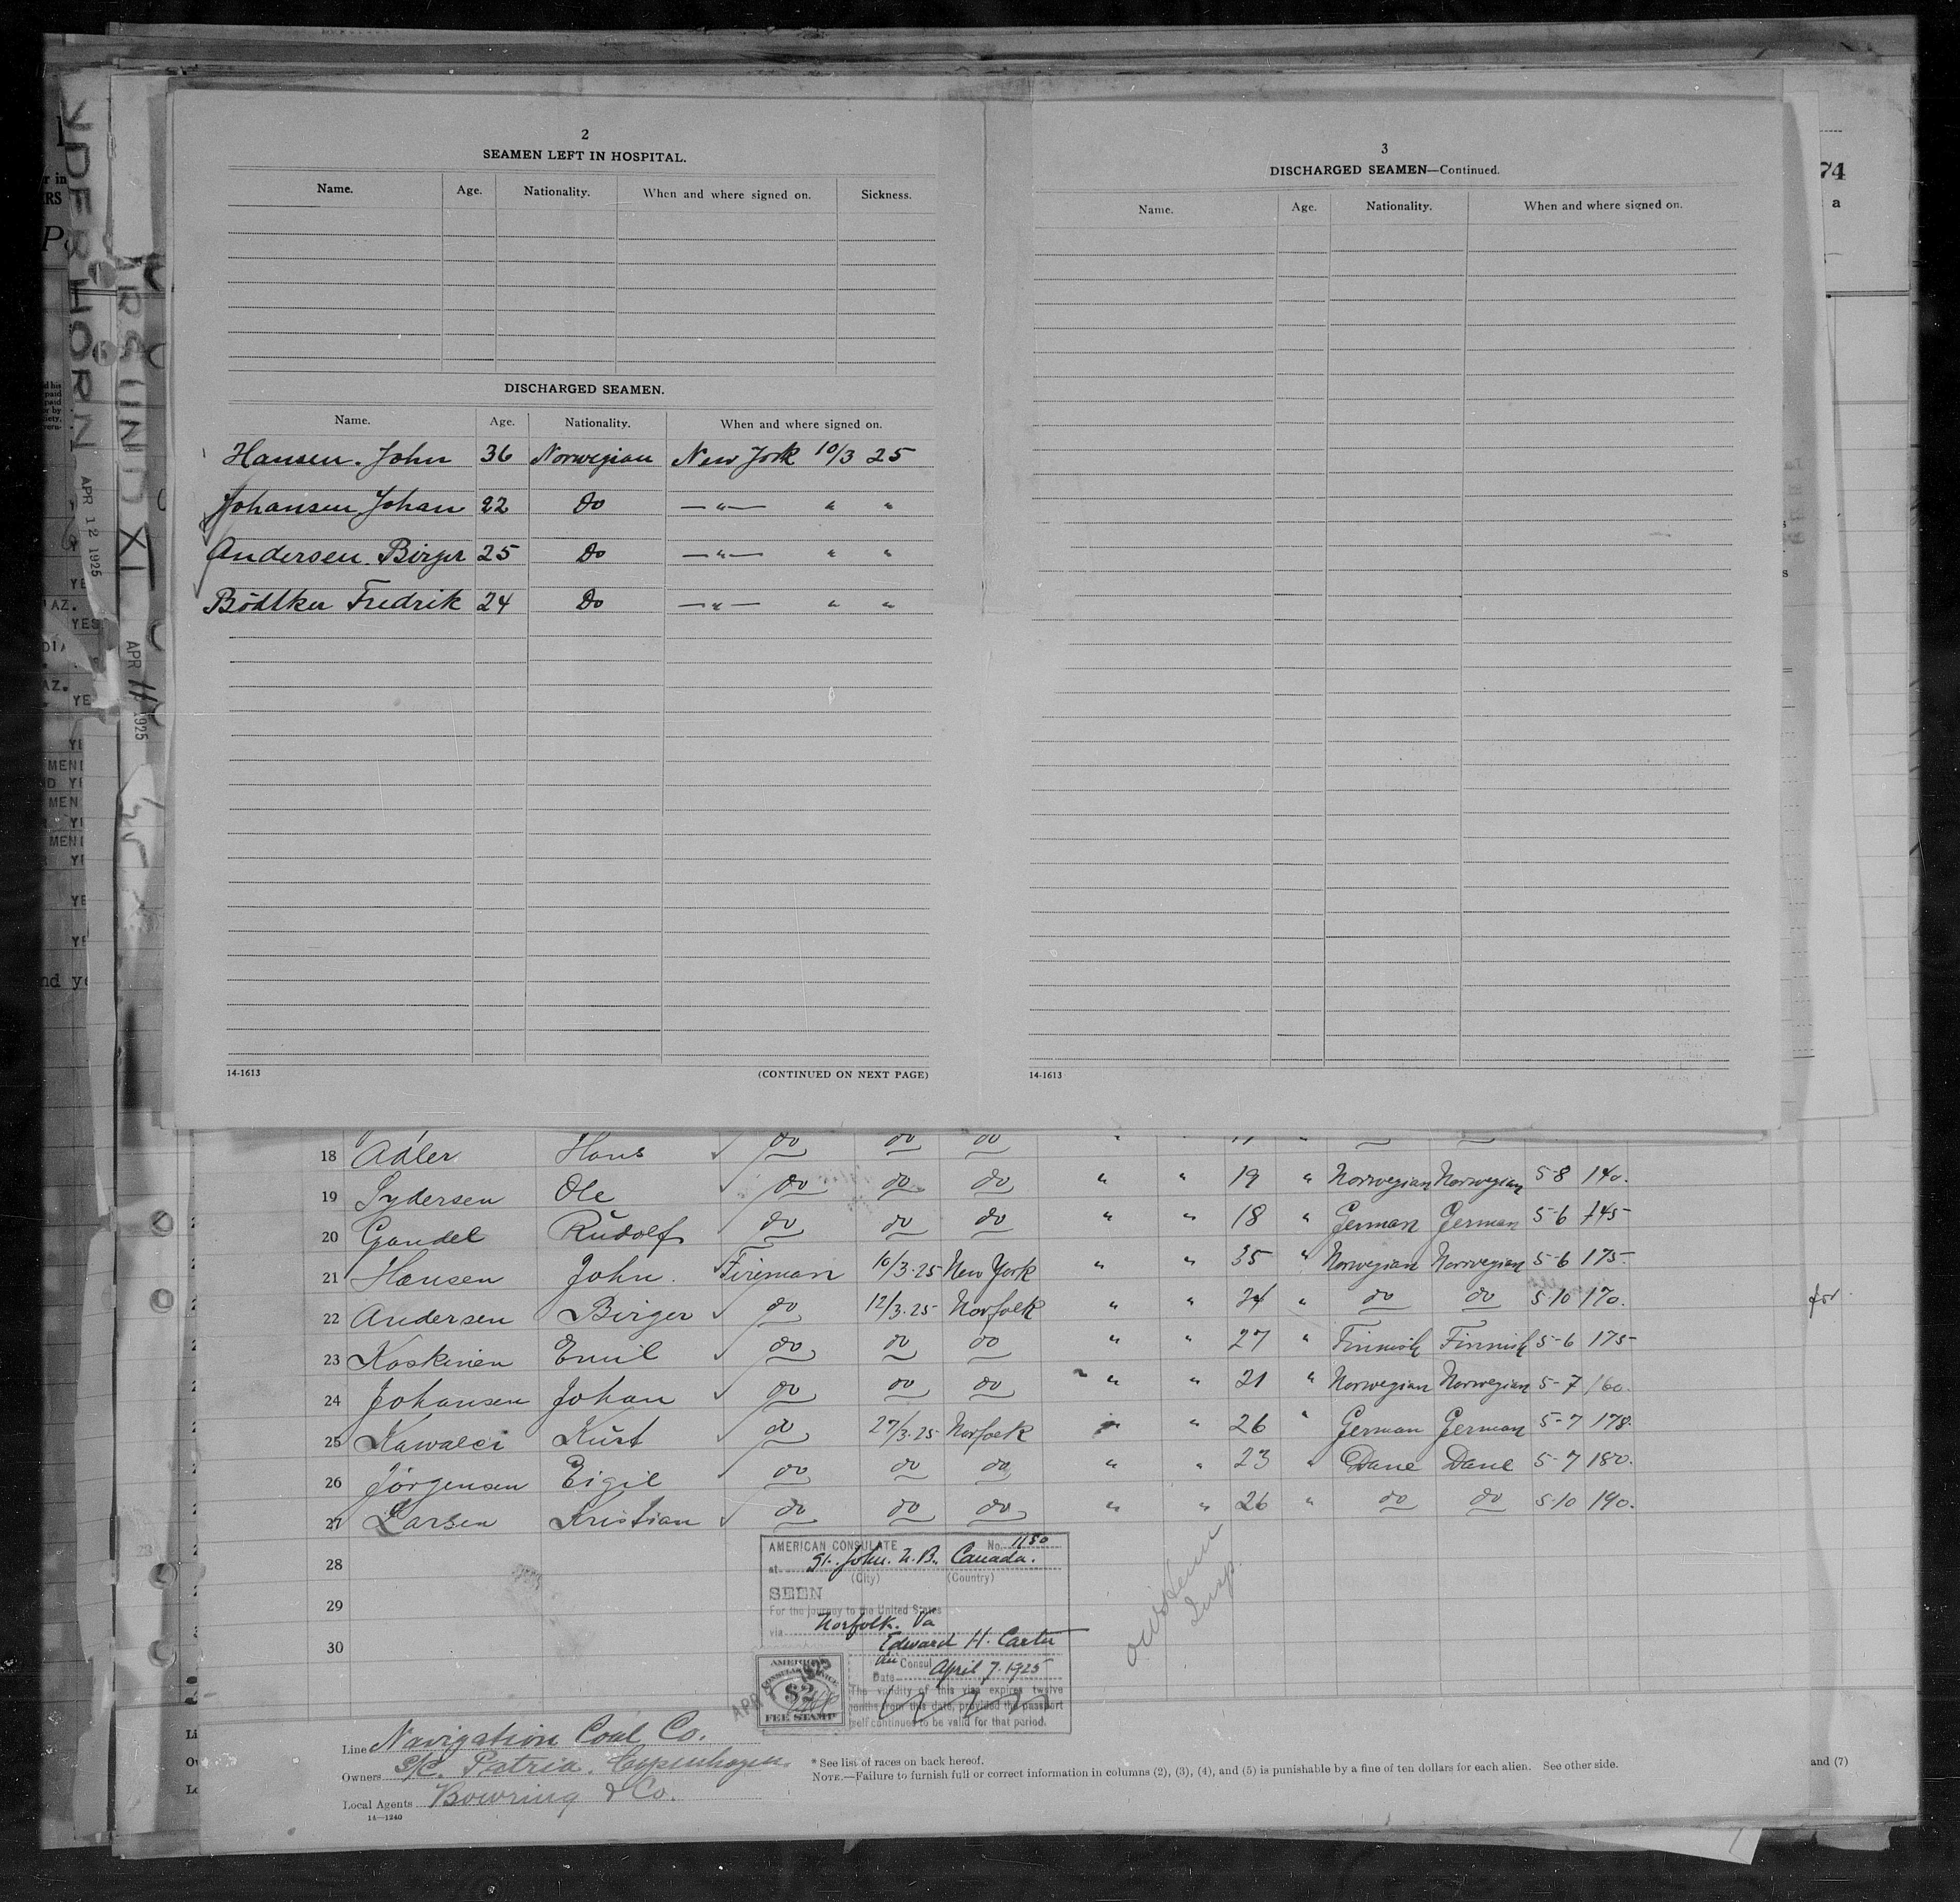 2
SEAMEN LEFT IN HOSPITAL.
Name. Age. Nationality. When and where signed on. Sickness.
DISCHARGED SEAMEN.
Name. Age. Nationality. When and where signed on.
Hansen. John 36 Norwegian New York 10/3 25
Johansen, Johan 22 do —"— " "
Andersen. Birger 25 Do —"— " "
Bödtker Fredrik 24 Do —"— " "
14-1613 (CONTINUED ON NEXT PAGE)
3
DISCHARGED SEAMEN—Continued.
Name. Age. Nationality. When and where signed on.
14-1613
74
a
APR 12 1925
XI
APR 11 1925
18 Adler Hans do do do
19 Sydersen Ole do do do " " 19 " Norwegian Norwegian 5-8 140.
20 Gandel Rudolf do do do " " 18 " German German 5-6 145
21 Hansen John. Fireman 10/3-25 New York " " 35 " Norwegian Norwegian 5-6 175.
22 Andersen Birger do 12/3-25 Norfolk " " 24 " do do 5-10 170.
23 Koskinen Emil do do do " " 27 " Finnish Finnish 5-6 175
24 Johansen Johan do do do " " 21 " Norwegian Norwegian 5-7 160.
25 Kawalci Kurt do 27/3-25 Norfolk " " 26 " German German 5-7 178.
26 Jörgensen Eigil do do do " " 23 " Dane Dane 5-7 180.
27 Larsen Kristian do do do " " 26 " do do 5-10 190.
28
29
30
AMERICAN CONSULATE No. 1180
at St. John. N. B., Canada.
(City) (Country)
SEEN
For the journey to the United States
via Norfolk. Va
Edward H. Carter
Consul
Date April 7. 1925
The validity of this visa expires twelve
months from this date, provided the passport
itself continues to be valid for that period.
AMERICAN
CONSULAR SERVICE
$2
FEE STAMP
Insp.
Line Navigation Coal Co.
Owners S/C. Patria. Copenhagen.
Local Agents Bowring & Co.
14—1240
* See list of races on back hereof.
NOTE.—Failure to furnish full or correct information in columns (2), (3), (4), and (5) is punishable by a fine of ten dollars for each alien. See other side.
and (7)